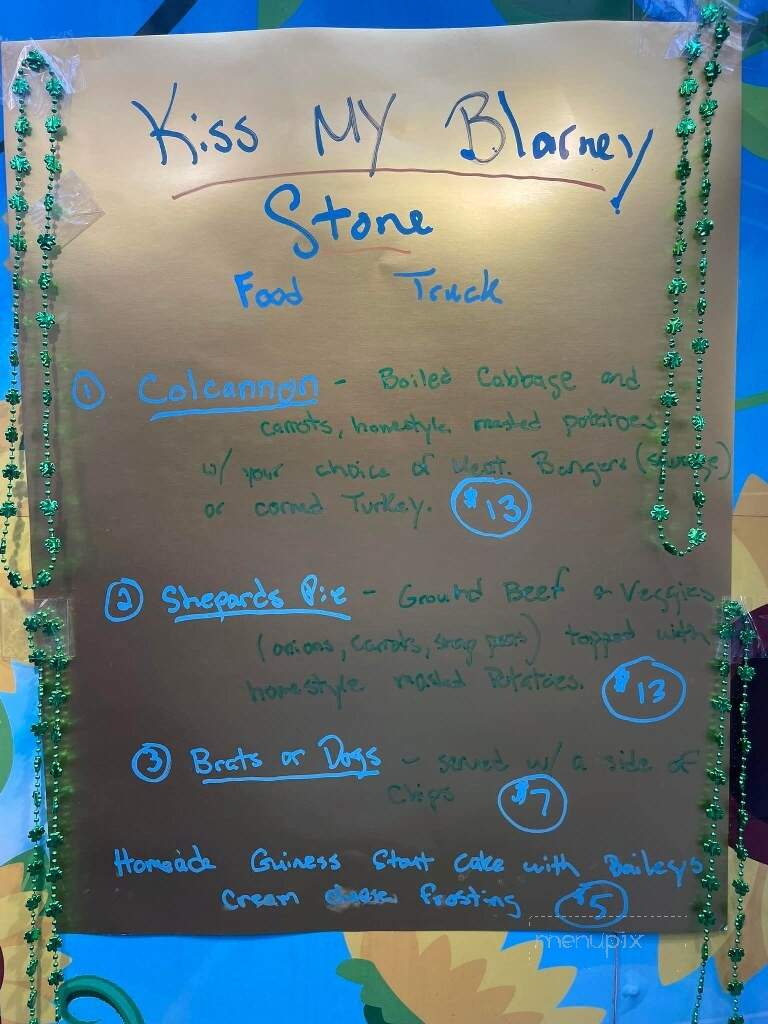 Kiss MY Blarney
Stone
Food Truck
① Colcannon - Boiled Cabbage and
carrots, homestyle mashed potatoes
w/ your choice of Meat. Bangers (sausage)
or corned Turkey. $13
② Shepards Pie - Ground Beef or Veggies
(onions, carrots, snap peas) topped with
homestyle mashed Potatoes. $13
③ Brats or Dogs - served w/ a side of
Chips $7
Guiness Stout cake with Baileys
Cream cheese frosting $5
menupix